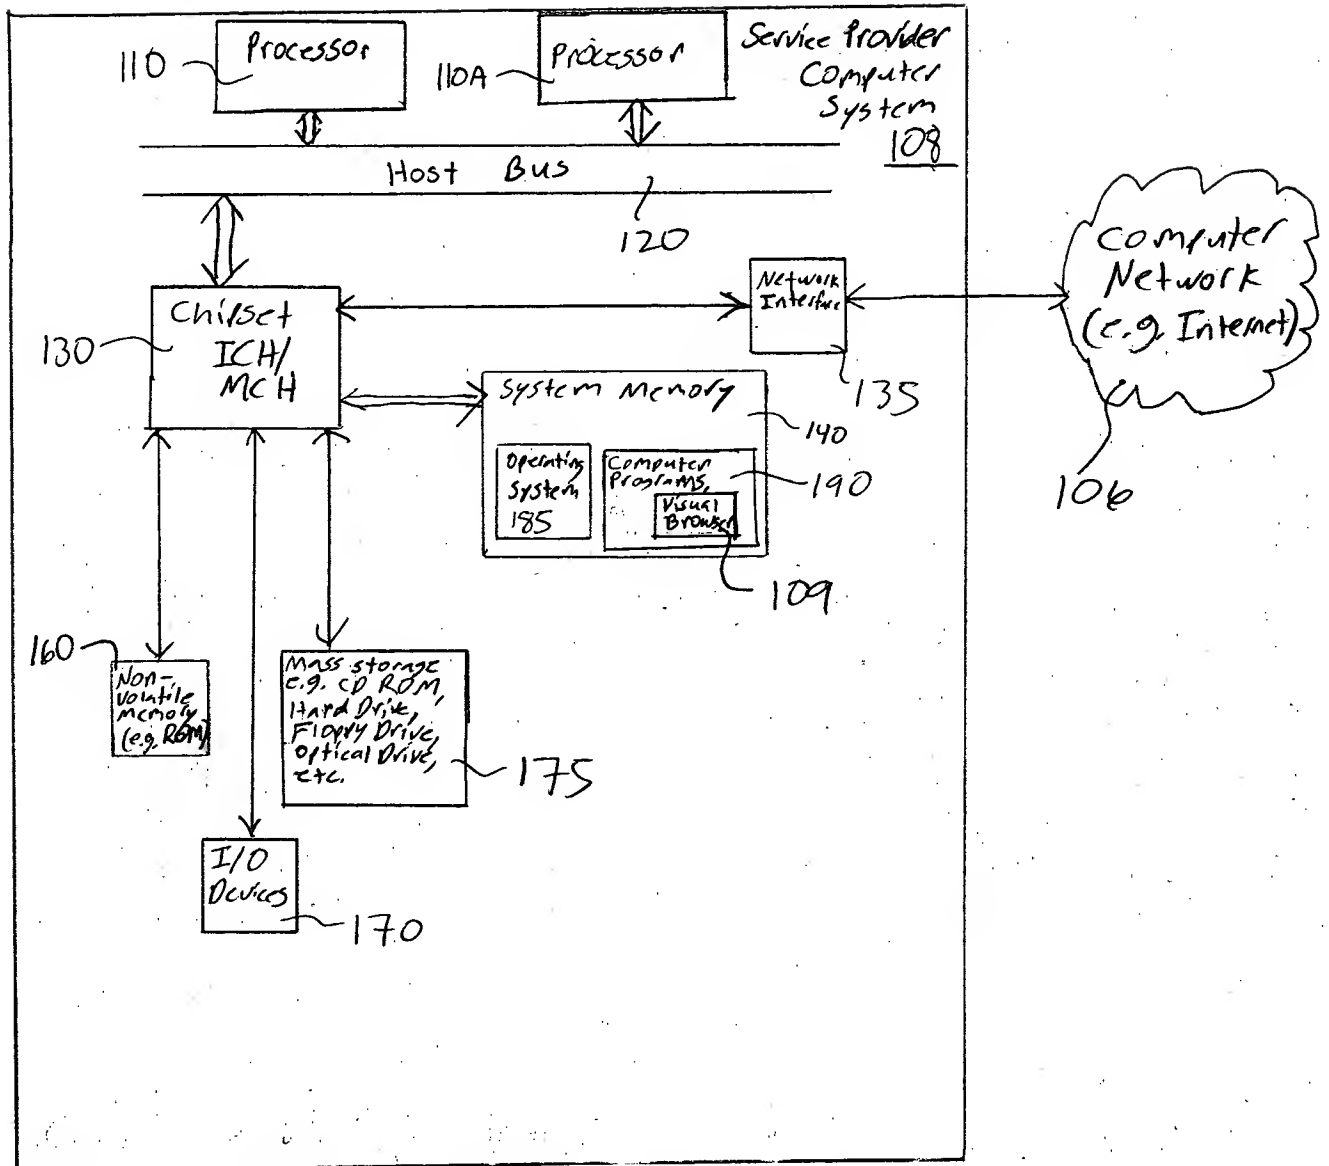 110
Processor
110A
Processor
Service Provider
Computer
System
108
Host Bus
120
Computer
Network
(e.g. Internet)
106
Network
Interface
135
130
Chipset
ICH/
MCH
System Memory
140
Operating
System
185
Computer
Programs,
190
Visual
Browser
109
160
Non-
volatile
memory
(e.g. ROM)
Mass storage
e.g. CD ROM,
Hard Drive,
Floppy Drive,
Optical Drive,
etc.
175
I/O
Devices
170